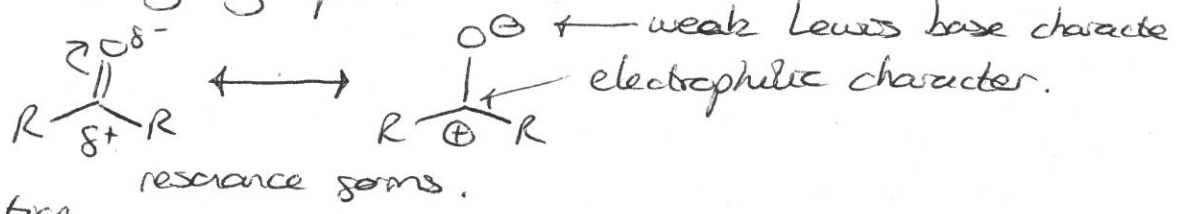 O δ- O ⊖ ← weak Lewis base characte
electrophilic character.
R δ+ R ↔ R ⊕ R
resonance forms.